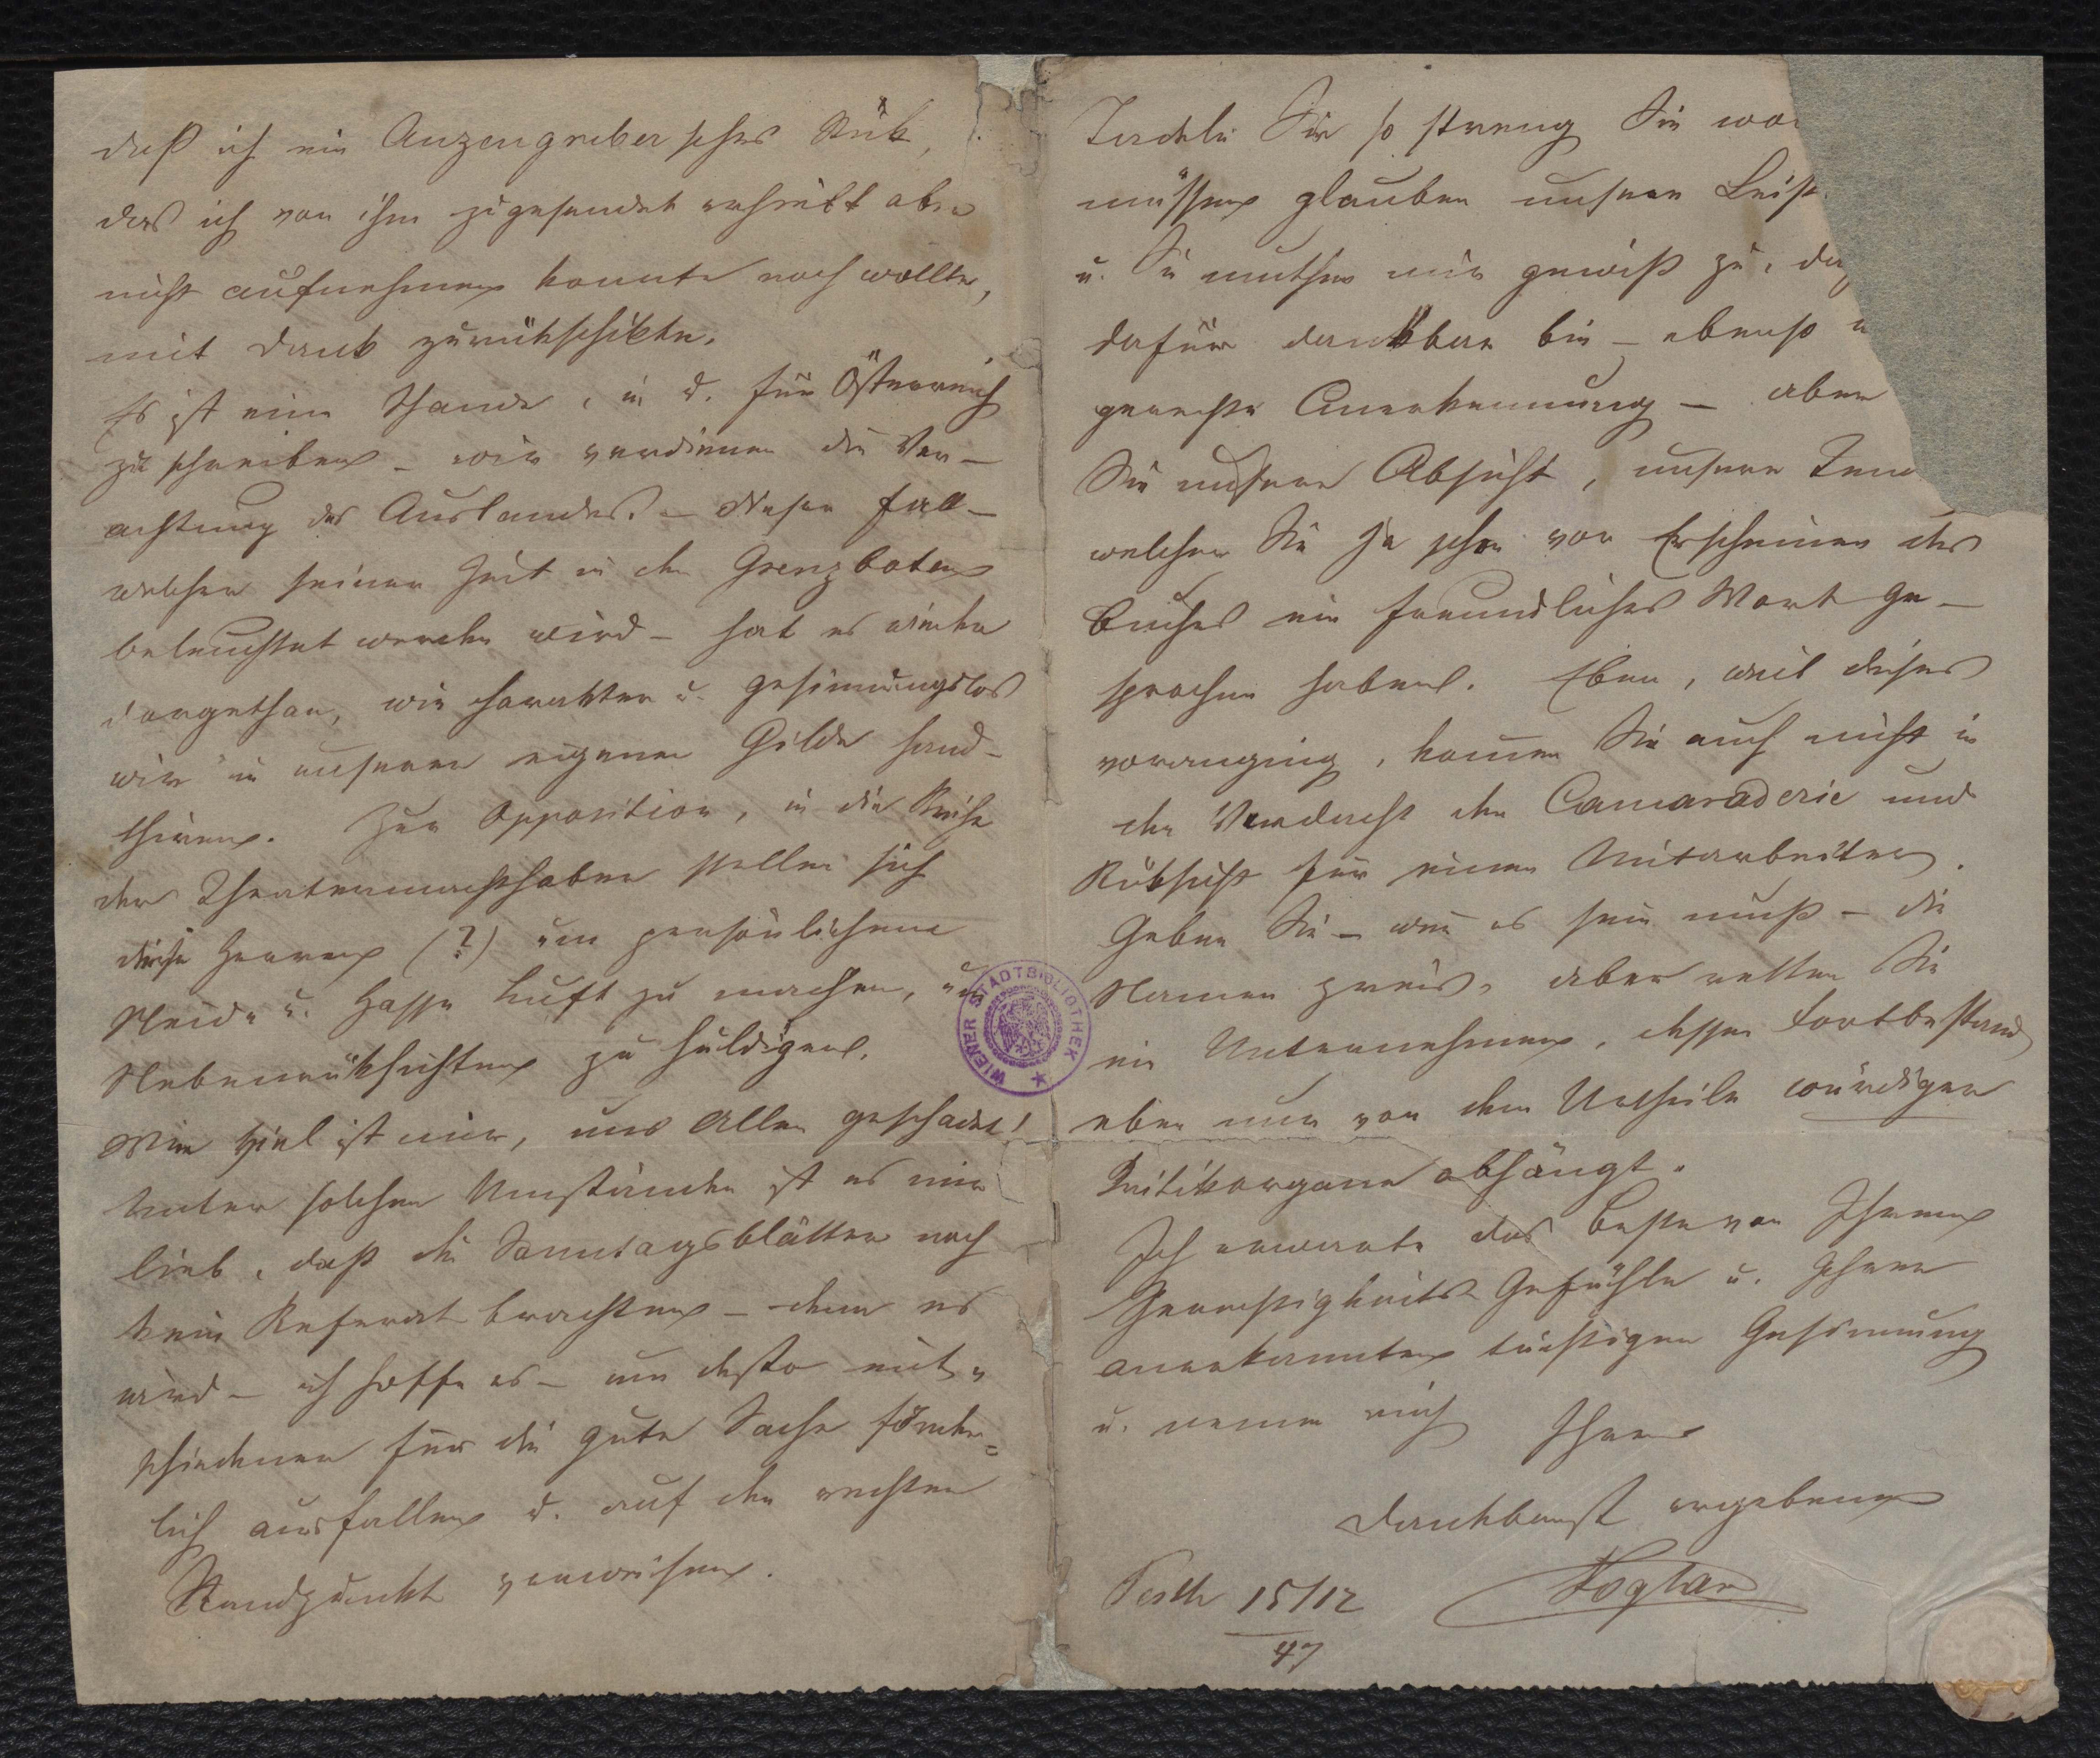 daß ich ein Anzengruber'sches Stük,
das ich von ihm zugesendet erhielt aber
nicht aufnehmen konnte noch wollte,
mit Dank zurükschikte.
Es ist eine Schande, in u. für Österreich
zu schreiben – wir verdienen die Ver–
achtung des Auslandes. – Dieser Fall –
welcher seiner Zeit in den Grenzboten
beleuchtet werden wird – hat es wieder
dargethan, wie charakter u. gesinnungslos
wir in unserer eigenen Gilde hand–
thiren. Zur Opposition, in die Reihe
der Theatermachthaber stellen sich
diese Herren (?) um persönlichem
Neide u. Hasse Luft zu machen, um
Nebenrüksichten zu huldigen.
Wie viel ist mir, uns Allen geschadet!
Unter solchen Umständen ist es mir
lieb, daß die Sonntagsblätter noch
kein Referat brachten – denn es
wird – ich hoffe es – um desto ent=
schiedener für die gute Sache förder=
lich ausfallen u. auf den rechten
Standpunkt verweisen.
Tadeln Sie so streng Sie
müssen glauben unsere
u. Sie muthen mir gewiß zu,
dafür dankbar bin – ebenso
gerechte Anerkennung – aber
Sie unsere Absicht, unsere
welcher Sie ja schon vor Erscheinen des
Buches ein freundliches Wort ge–
sprochen haben. Eben, weil dieses
voranging, komen Sie auch nicht in
den Verdacht der Camaraderie und
Rüksicht für einen Mitarbeiter.
Geben Sie – wen es sein muß – die
Namen preis, aber retten Sie
ein Unternehmen, dessen Fortbestand
eben nur von dem Urtheile würdiger
Kritikorgane abhängt.
Ich erwarte das Beste von Ihrem
Gerechtigkeits Gefühle u. Ihrer
anerkannten tüchtigen Gesinnung
u. nenne mich Ihren
dankbarst ergebenen
Pesth 15/12 Foglar
47
WIENER STADTBIBLIOTHEK